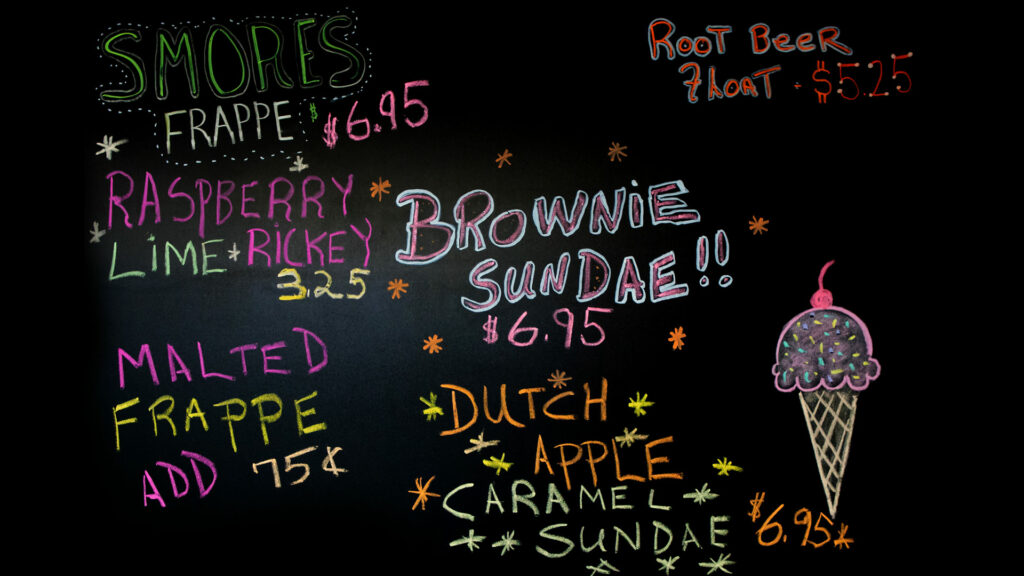 SMORES
FRAPPE $ $6.95
RASPBERRY
LIME * RICKEY
3.25
MALTED
FRAPPE
ADD 75¢
ROOT BEER
FLOAT - $5.25
BROWNIE
SUNDAE!!
$6.95
DUTCH
APPLE
CARAMEL
SUNDAE $6.95